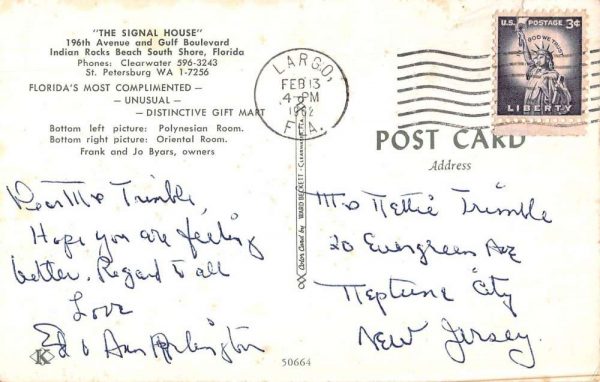 "THE SIGNAL HOUSE"
196th Avenue and Gulf Boulevard
Indian Rocks Beach South Shore, Florida
Phones: Clearwater 596-3243
St. Petersburg WA 1-7256
FLORIDA'S MOST COMPLIMENTED —
— UNUSUAL —
— DISTINCTIVE GIFT MART
Bottom left picture: Polynesian Room.
Bottom right picture: Oriental Room.
Frank and Jo Byars, owners
LARGO,
FEB 13
4-PM
1962
FLA.
U.S. POSTAGE 3¢
IN GOD WE TRUST
LIBERTY
POST CARD
Address
Dear Mrs Trimble,
Hope you are feeling
better. Regard to all
Love
Ed & Ann
Color Card by WARD BECKETT - CLEARWATER, FLA.
Mrs Nettie Trimble
20 Evergreen Ave
Neptune City
New Jersey.
K
50664